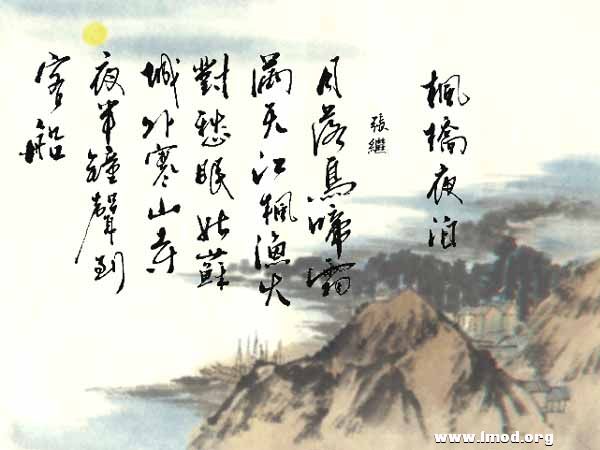 楓橋夜泊
張繼
月落烏啼霜
滿天江楓漁火
對愁眠姑蘇
城外寒山寺
夜半鐘聲到
客船
www.lmod.org